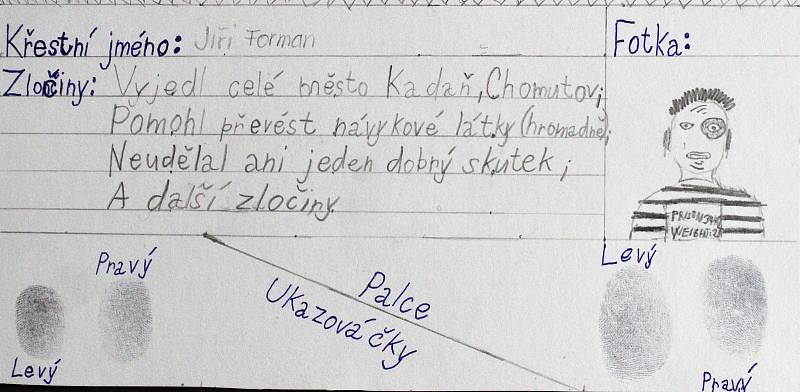 Křestní jméno: Jiří Forman
Fotka:
Zločiny: Vyjedl celé město Kadaň, Chomutov;
Pomohl převést návykové látky (hromadně);
Neudělal ani jeden dobný skutek;
A další zločiny.
Levý
Pravý
Palce
Ukazováčky
Levý
Pravý